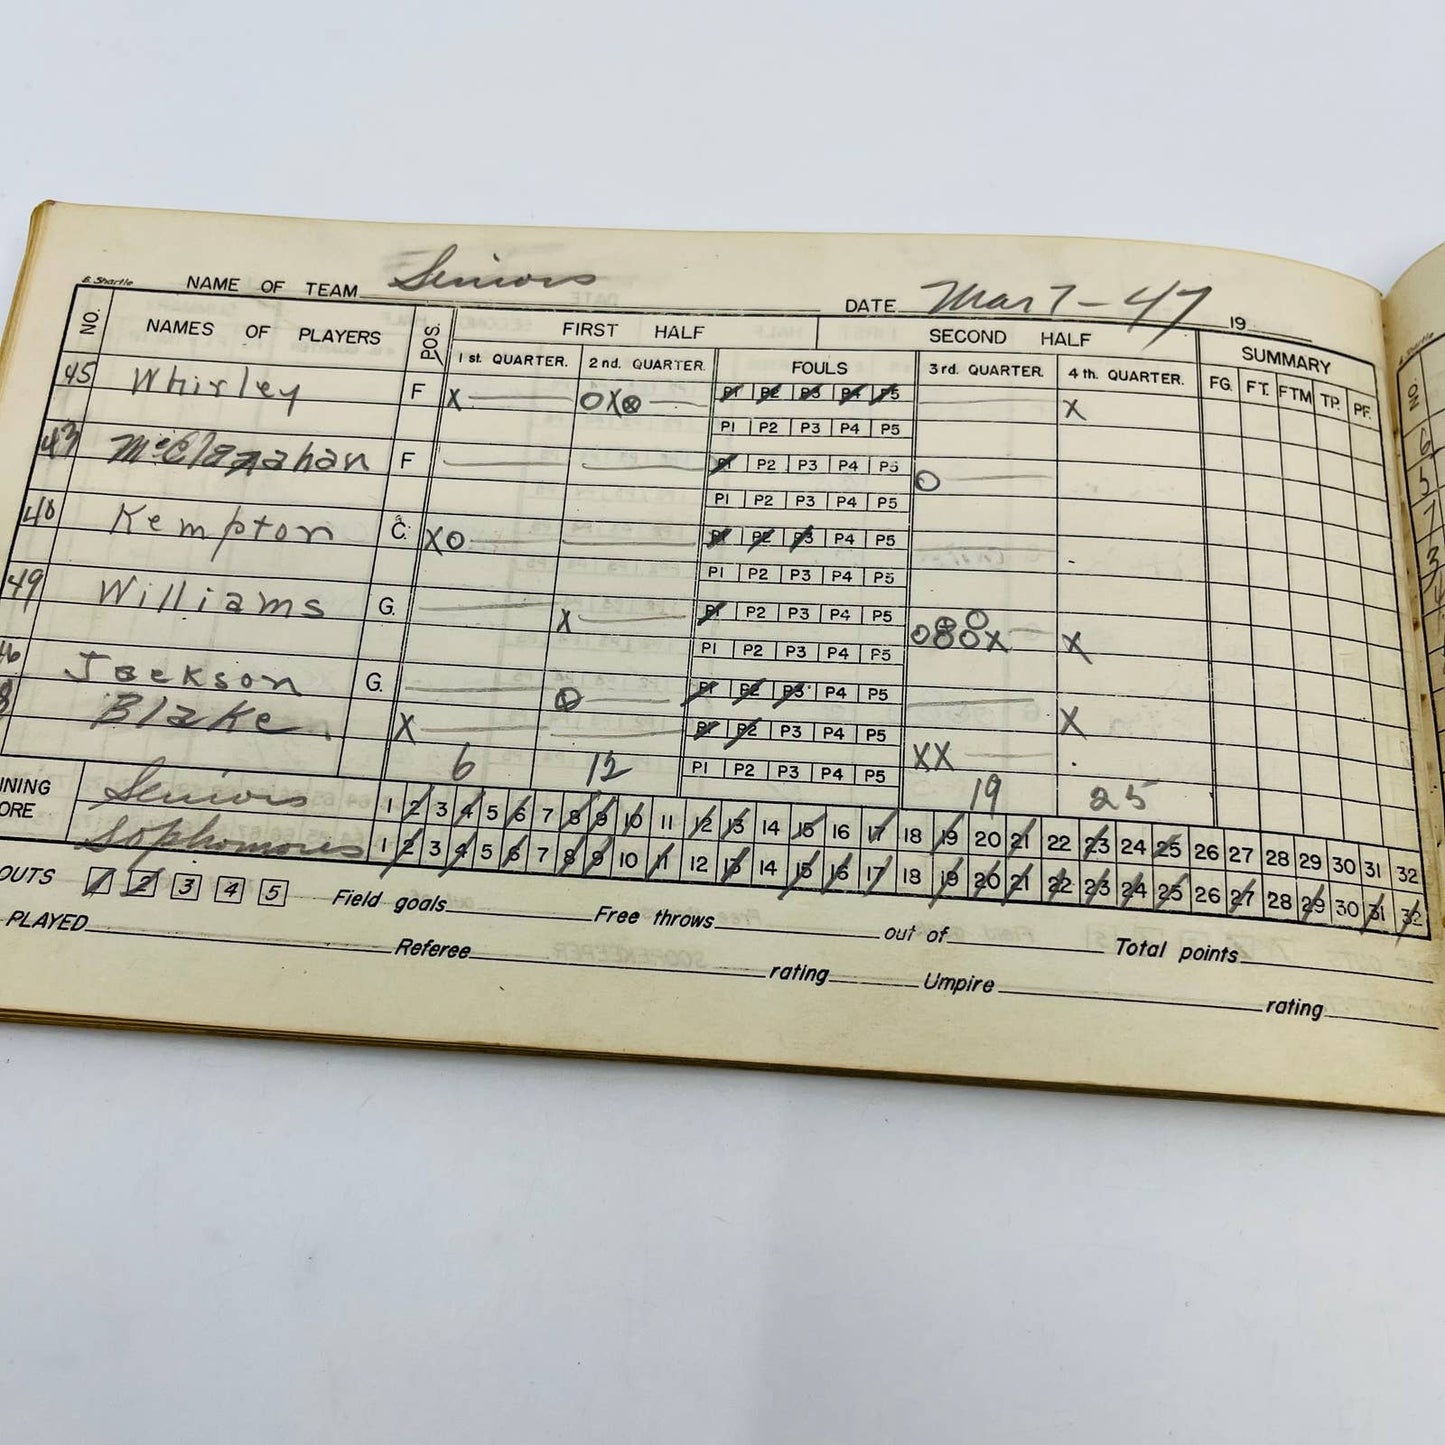 B. Shartle NAME OF TEAM Seniors DATE Mar 7-47 19
NO. NAMES OF PLAYERS POS. FIRST HALF SECOND HALF SUMMARY
1 st. QUARTER. 2 nd. QUARTER. FOULS 3 rd. QUARTER. 4 th. QUARTER. FG. FT. FTM TP. PF.
45 Whirley F X OX⊗ P1 P2 P3 P4 P5 X
P1 P2 P3 P4 P5
43 McClanahan F P1 P2 P3 P4 P5 O
P1 P2 P3 P4 P5
48 Kempton C. XO P1 P2 P3 P4 P5
P1 P2 P3 P4 P5
49 Williams G. X P1 P2 P3 P4 P5 X
P1 P2 P3 P4 P5
46 Jackson G. P1 P2 P3 P4 P5 X
Blake X P1 P2 P3 P4 P5 XX
6 12 P1 P2 P3 P4 P5 19 25
Seniors 1 2 3 4 5 6 7 8 9 10 11 12 13 14 15 16 17 18 19 20 21 22 23 24 25 26 27 28 29 30 31 32
Sophomores 1 2 3 4 5 6 7 8 9 10 11 12 13 14 15 16 17 18 19 20 21 22 23 24 25 26 27 28 29 30 31 32
OUTS 1 2 3 4 5 Field goals Free throws out of Total points
PLAYED Referee rating Umpire rating